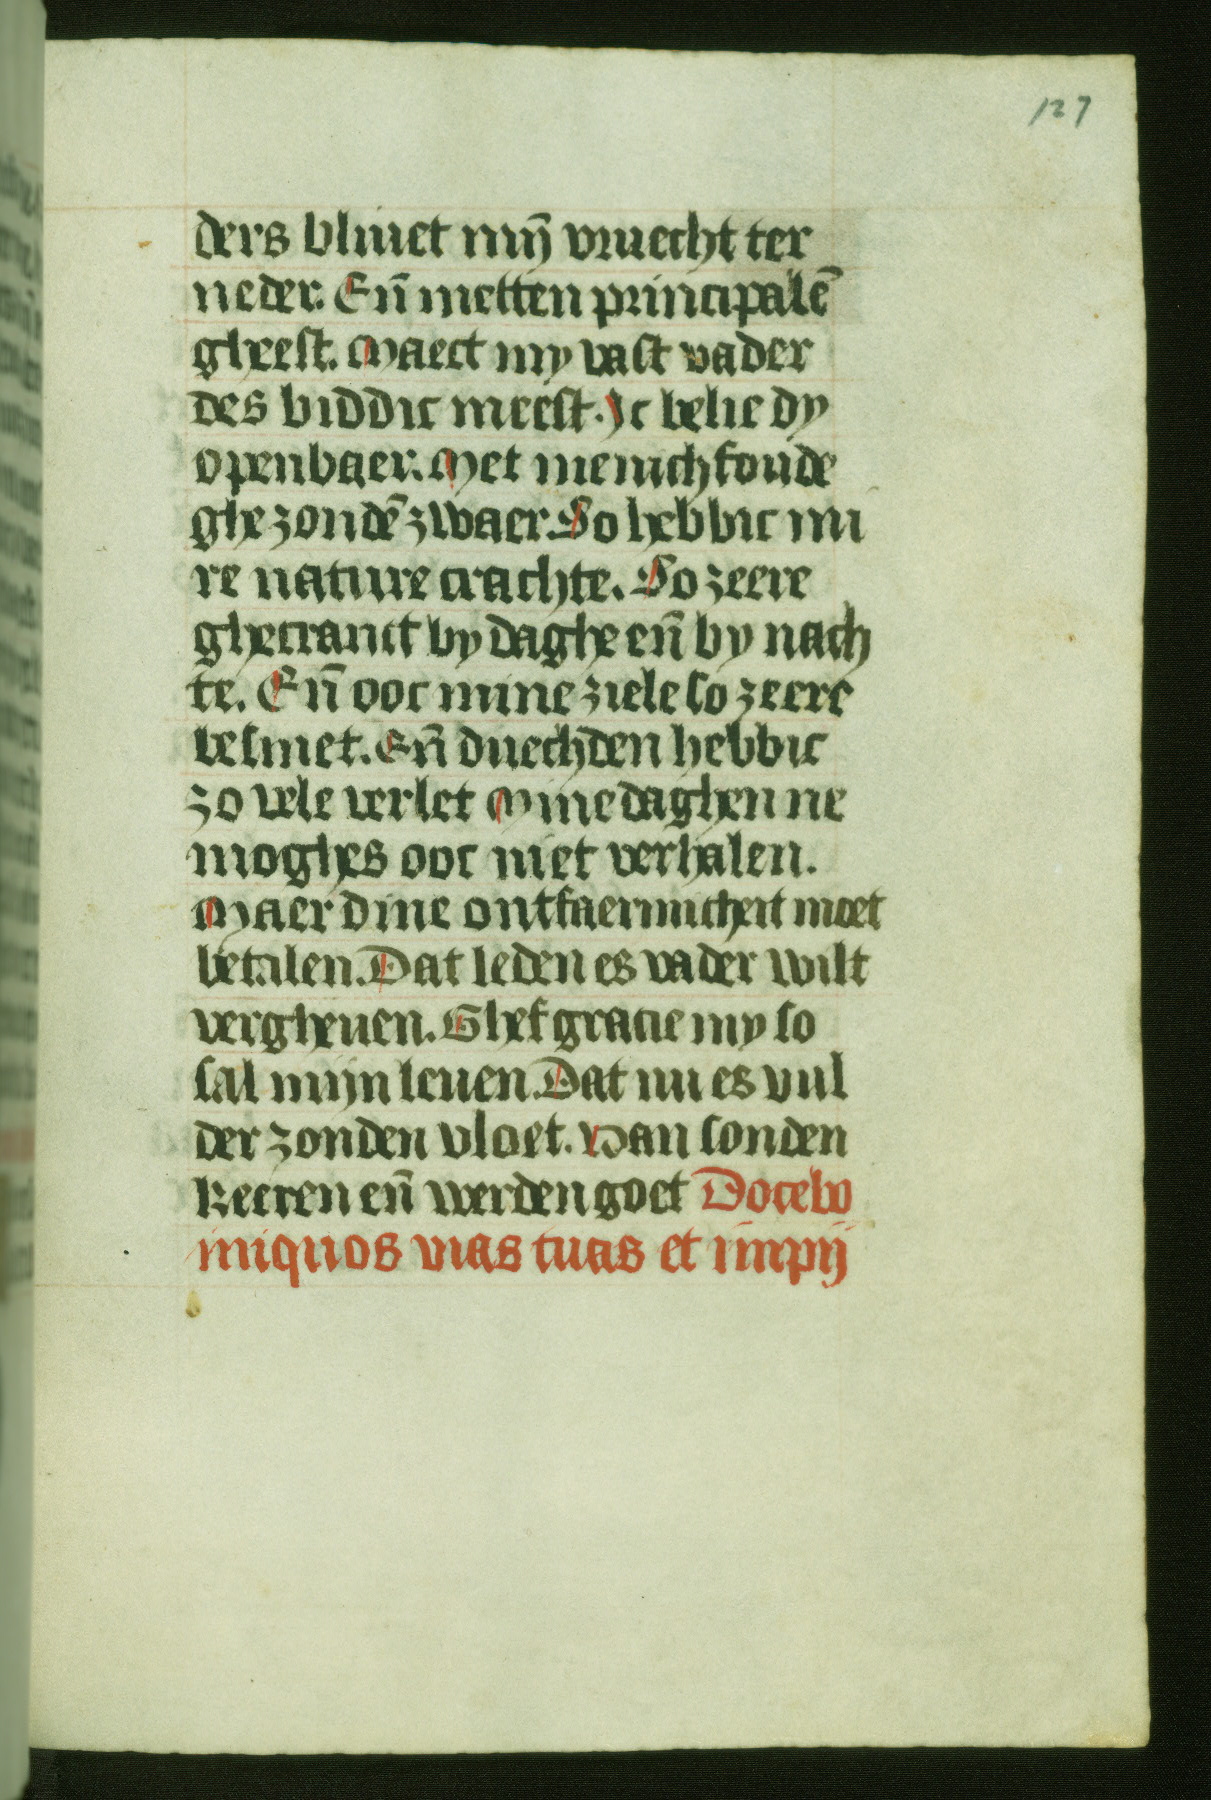 127
ders bliuet mijn̄ vruecht ter
neder. En̄ metten principalē
gheest. Maect my vast vader
des biddic meest. Ic belie dy
openbaer. Met menichfoude
ghe zondē zwaer. So hebbic mi
re nature crachte. So zeere
ghecranct by daghe en̄ by nach
te. En̄ ooc mine ziele so zeere
besmet. En̄ duechden hebbic
zo vele verlet Mine daghen ne
moghes ooc niet verhalen.
Maer dine ontfaermicheit moet
betalen. Dat leden es vader wilt
vergheuen. Ghef gracie my so
sal mijn leuen. Dat nu es vul
der zonden vloet. Van sonden
keeren en̄ werden goet Docebo
iniquos vias tuas et impij